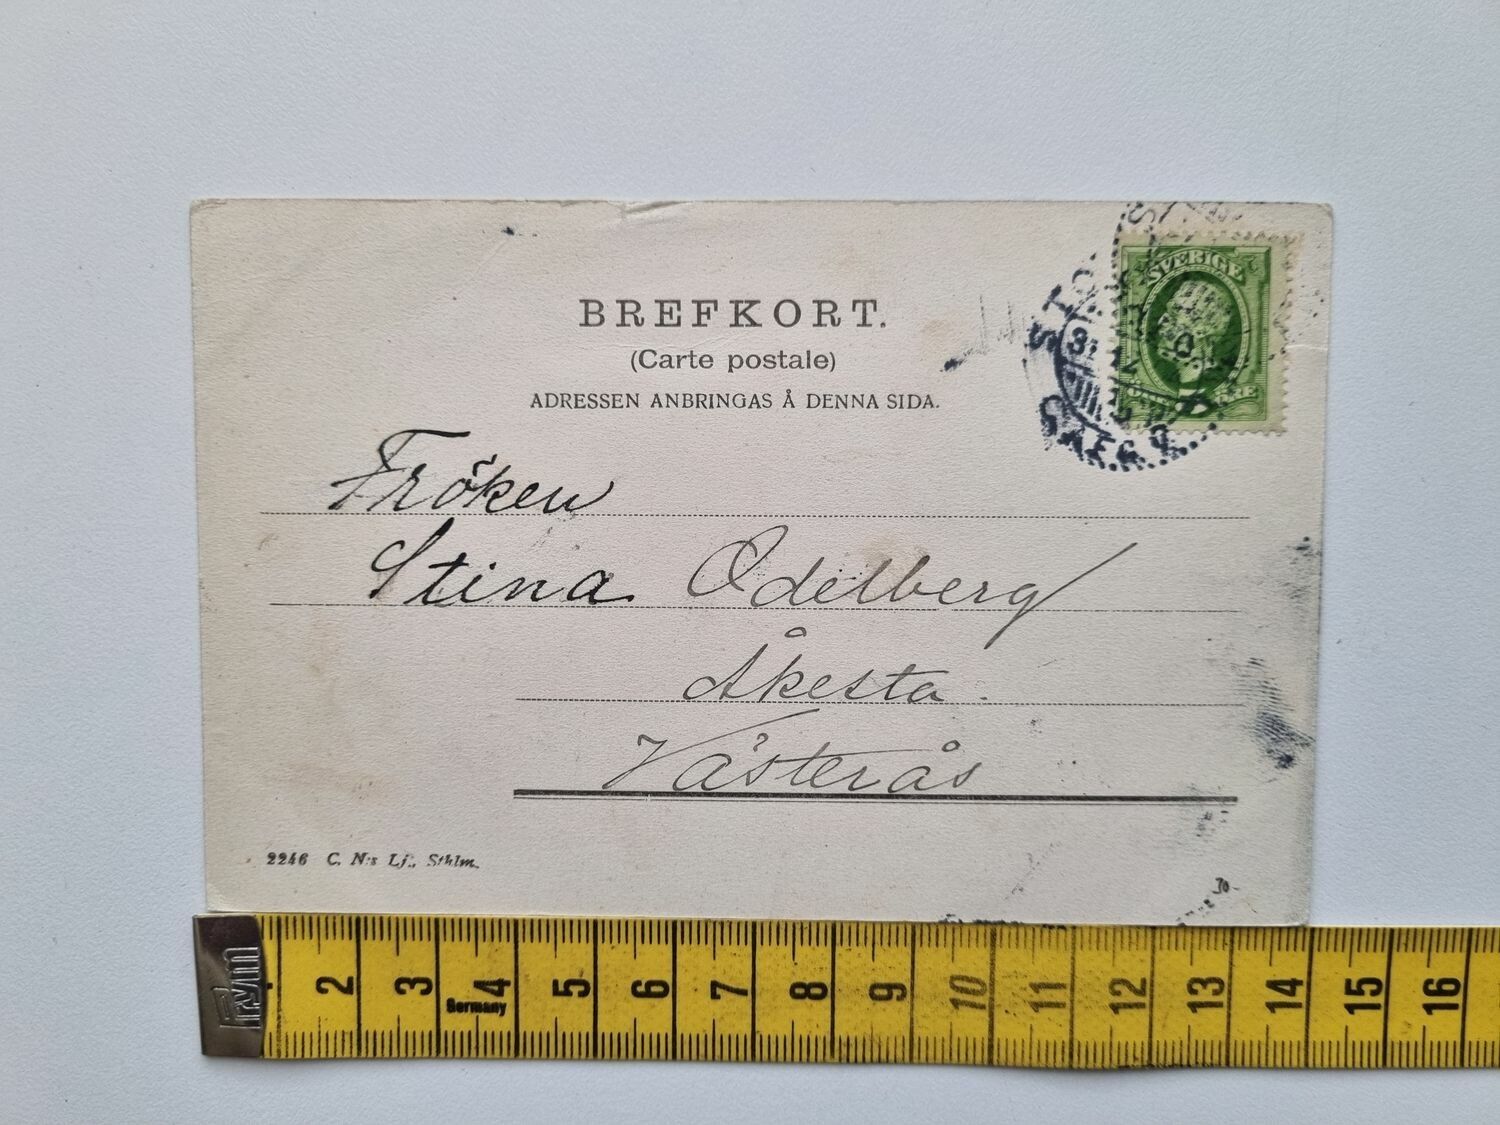 BREFKORT.
(Carte postale)
ADRESSEN ANBRINGAS Å DENNA SIDA.
SVERIGE
Fröken
Stina Odelberg
Åkesta.
Västerås
2246 C. N:s Lj., Sthlm.
30-
Prym
2 3 4 5 6 7 8 9 10 11 12 13 14 15 16
Germany